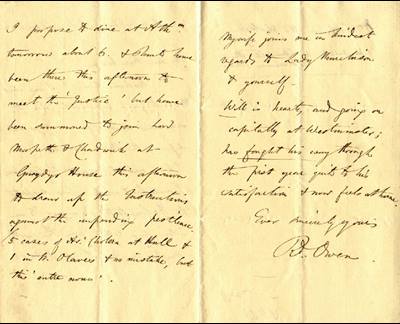 I propose to dine at Ath^m
tomorrow about 6. & should have
been there this afternoon to
meet the 'Justice' but have
been summoned to join Lord
Morpeth & Chadwick at
Gwydyr House this afternoon
to draw up the Instructions
against the impending pestilence.
5 cases of As. Cholera at Hull &
1 in St. Olaves & no mistake, but
this 'entre nous'.
My wife joins me in kindest
regards to Lady Murchison
& yourself.
Will is hearty, and going on
capitally at Westminster;
has fought his way through
the first year quite to his
satisfaction & now feels at home.
Ever sincerely yours
Rd. Owen.